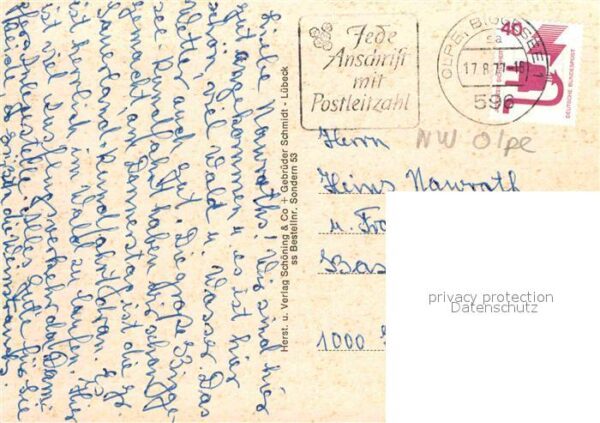 Jede
Anschrift
mit
Postleitzahl
OLPE, BIGGESEE 1
sa
17.8.77-16
596
40
DEUTSCHE BUNDESPOST
NW Olpe
Herrn
Heins Nawrath
u. Fra
Bas
1000
privacy protection
Datenschutz
Herst. u. Verlag Schöning & Co + Gebrüder Schmidt - Lübeck
ss Bestellnr. Sondern 53
Liebe Nawraths! Wir sind hier
gut angekommen u. es ist hier
schön, viel Wald u. Wasser. Das
Wetter auch gut. Die große Bigge-
see-Rundfahrt haben wir schon
gemacht am Donnerstag ist die
Sauerland-Rundfahrt dran. Es
ist herrlich im Wald zu laufen. Hier
ist viel Ausflugsverkehr
Alles Gute für Sie